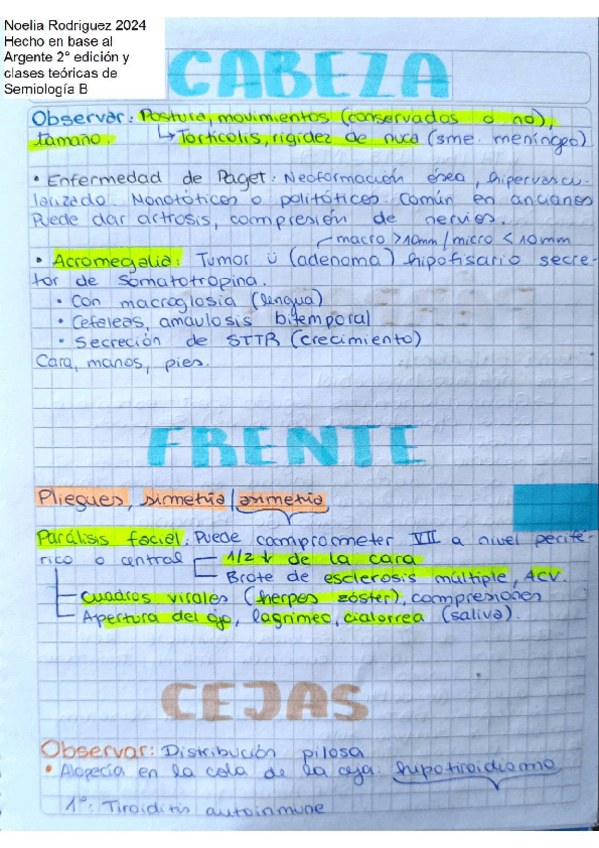 Noelia Rodriguez 2024
Hecho en base al
Argente 2° edición y
clases teóricas de
Semiología B
CABEZA
Observar: Postura, movimientos (conservados o no),
tamaño. ↳ Torticolis, rigidez de nuca (sme. meníngeo)
• Enfermedad de Paget: Neoformación ósea, hipervascu-
larizado. Monotóticos o politóticos. Común en ancianos
Puede dar artrosis, compresión de nervios.
macro >10mm/micro <10mm
• Acromegalia: Tumor ü (adenoma) hipofisario secre-
tor de somatotropina.
• Con macroglosia (lengua)
• Cefeleas, amaulosis bitemporal
• Secreción de STTR (crecimiento)
Cara, manos, pies.
FRENTE
Pliegues, simetría/asimetría
Parálisis facial: Puede comprometer VII a nivel perifé-
rico o central 1/2 ↓ de la cara
Brote de esclerosis múltiple, ACV.
Cuadros virales (herpes zóster), compresiones
Apertura del ojo, lagrimeo, cialorrea (saliva).
CEJAS
Observar: Distribución pilosa
• Alopecía en la cola de la ceja. hipotiroidismo
1°: Tiroiditis autoinmune